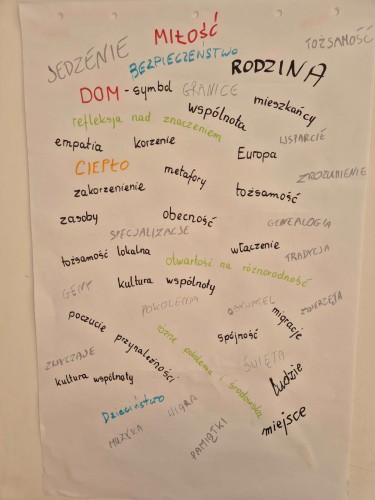 MIŁOŚĆ
TOŻSAMOŚĆ
JEDZENIE
BEZPIECZEŃSTWO
RODZINA
DOM - symbol
GRANICE
wspólnota
mieszkańcy
refleksja nad znaczeniem
empatia
korzenie
WSPARCIE
Europa
CIEPŁO
metafory
ZROZUMIENIE
zakorzenienie
tożsamość
zasoby
obecność
GENEALOGIA
SPECJALIZACJE
włączenie
tożsamość lokalna
otwartość na różnorodność
TRADYCJA
GENY
kultura wspólnoty
POKOLENIA
migracje
ZWIERZĘTA
poczucie przynależności
różne pokolenia i środowiska
spójność
ZWYCZAJE
ŚWIĘTA
kultura wspólnoty
ludzie
Dzieciństwo
WIARA
miejsce
MUZYKA
PAMIĄTKI